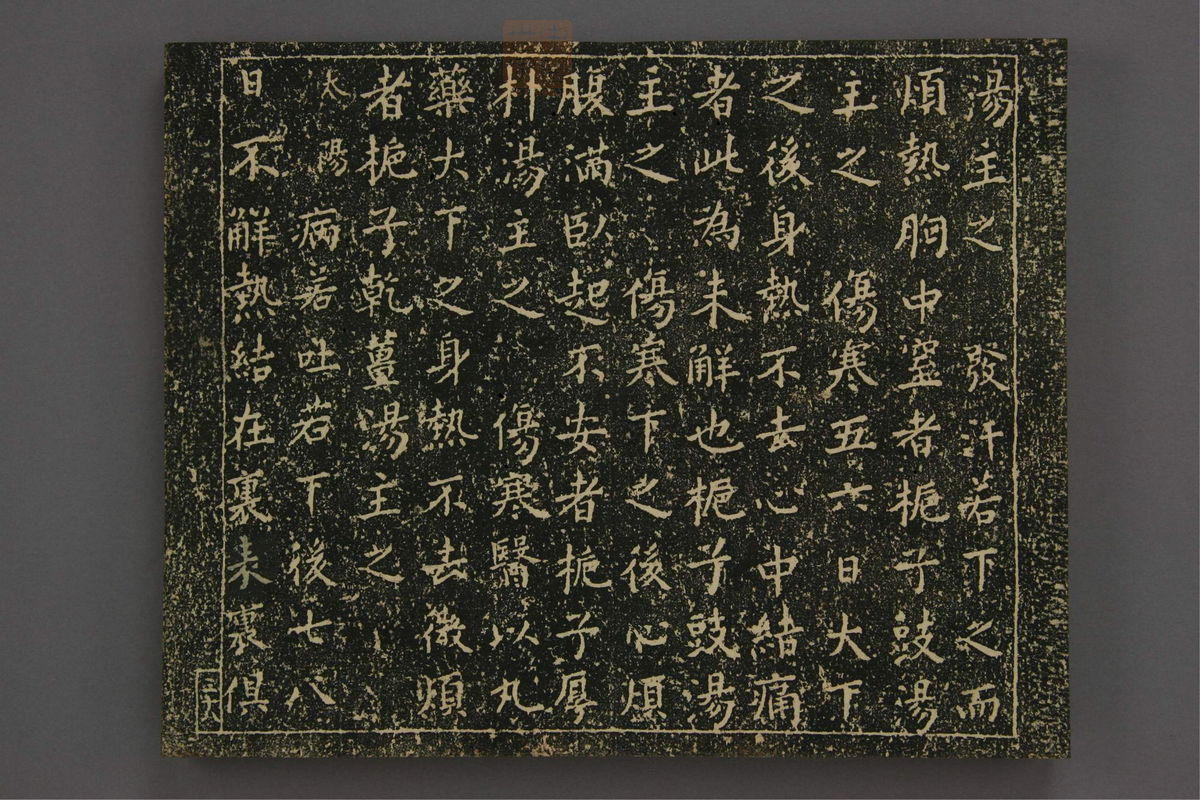 湯主之　發汗若下之而
煩熱胷中窒者梔子豉湯
主之　傷寒五六日大下
之後身熱不去心中結痛
者此為未解也梔子豉湯
主之　傷寒下之後心煩
腹滿臥起不安者梔子厚
朴湯主之　傷寒醫以丸
藥大下之身熱不去微煩
者梔子乾薑湯主之
太陽病若吐若下後七八
日不解熱結在裏表裏俱